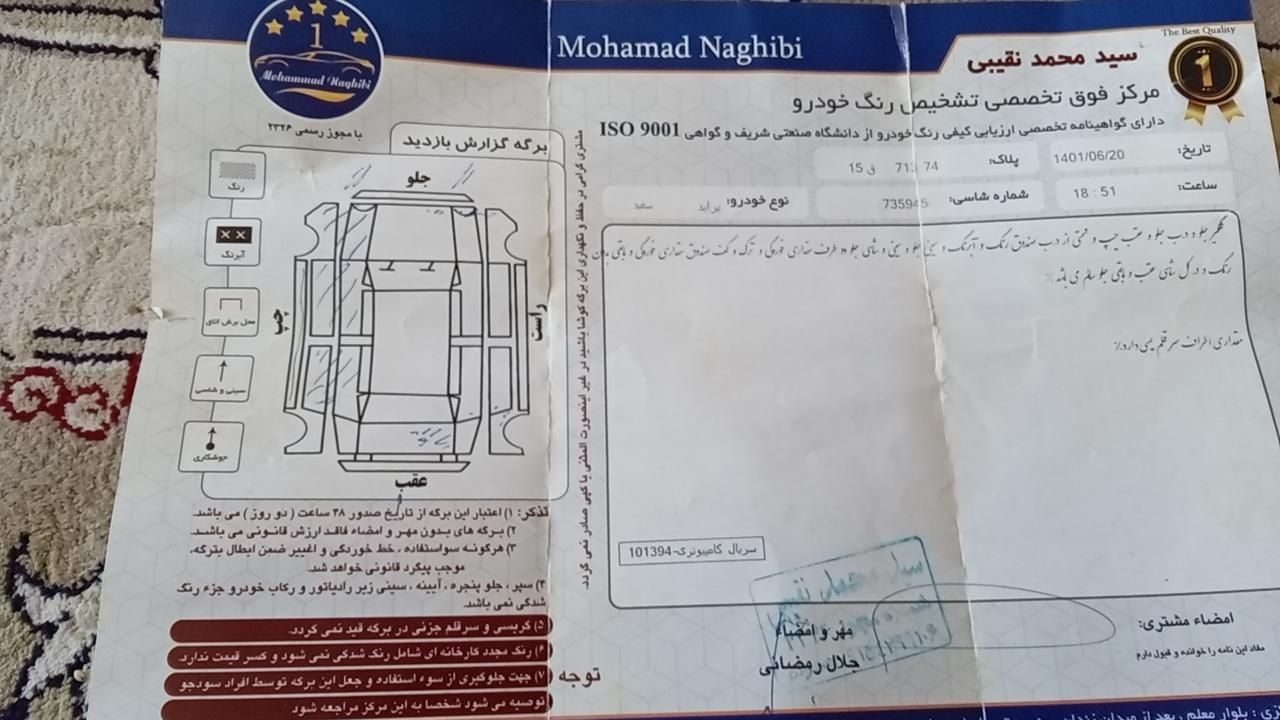 Mohamad Naghibi
1
Mohammad Naghibi
The Best Quality
1
سید محمد نقیبی
مرکز فوق تخصصی تشخیص رنگ خودرو
دارای گواهینامه تخصصی ارزیابی کیفی رنگ خودرو از دانشگاه صنعتی شریف و گواهی ISO 9001
با مجوز رسمی ۲۳۲۶
تاریخ: 1401/06/20
پلاک: 74 713 ق 15
ساعت: 18 : 51
شماره شاسی: 735945
نوع خودرو: پراید سفید
گلگیر جلو و درب جلو و عقب چپ و قسمتی از درب صندوق رنگ و آبرنگ و سینی جلو و سینی و شاسی جلو دو طرف مقداری خوردگی و ترک و کف صندوق مقداری خوردگی و باقی بدون
رنگ و در کل شاسی عقب و باقی جلو سالم می باشد٪
مقداری اطراف سر قلم یسی دارد٪
سریال کامپیوتری-101394
برگه گزارش بازدید
جلو
چپ
راست
عقب
رنگ
آبرنگ
محل برش اتاق
سینی و شاسی
جوشکاری
مشتری گرامی در حفظ و نگهداری این برگه کوشا باشید در غیر اینصورت المثنی یا کپی صادر نمی گردد.
تذکر: ۱) اعتبار این برگه از تاریخ صدور ۴۸ ساعت ( دو روز ) می باشد.
۲) برگه های بدون مهر و امضاء فاقد ارزش قانونی می باشد.
۳) هرگونه سواستفاده ، خط خوردگی و اغییر ضمن ابطال بترگه،
موجب پیگرد قانونی خواهد شد.
۴) سپر ، جلو پنجره ، آیینه ، سینی زیر رادیاتور و رکاب خودرو جزء رنگ
شدگی نمی باشد.
۵) گریسی و سرقلم جزئی در برگه قید نمی گردد.
۶) رنگ مجدد کارخانه ای شامل رنگ شدگی نمی شود و کسر قیمت ندارد.
توجه ۷) جهت جلوگیری از سوء استفاده و جعل این برگه توسط افراد سودجو
توصیه می شود شخصا به این مرکز مراجعه شود
مهر و امضاء
جلال رمضانی
امضاء مشتری:
مفاد این نامه را خوانده و قبول دارم